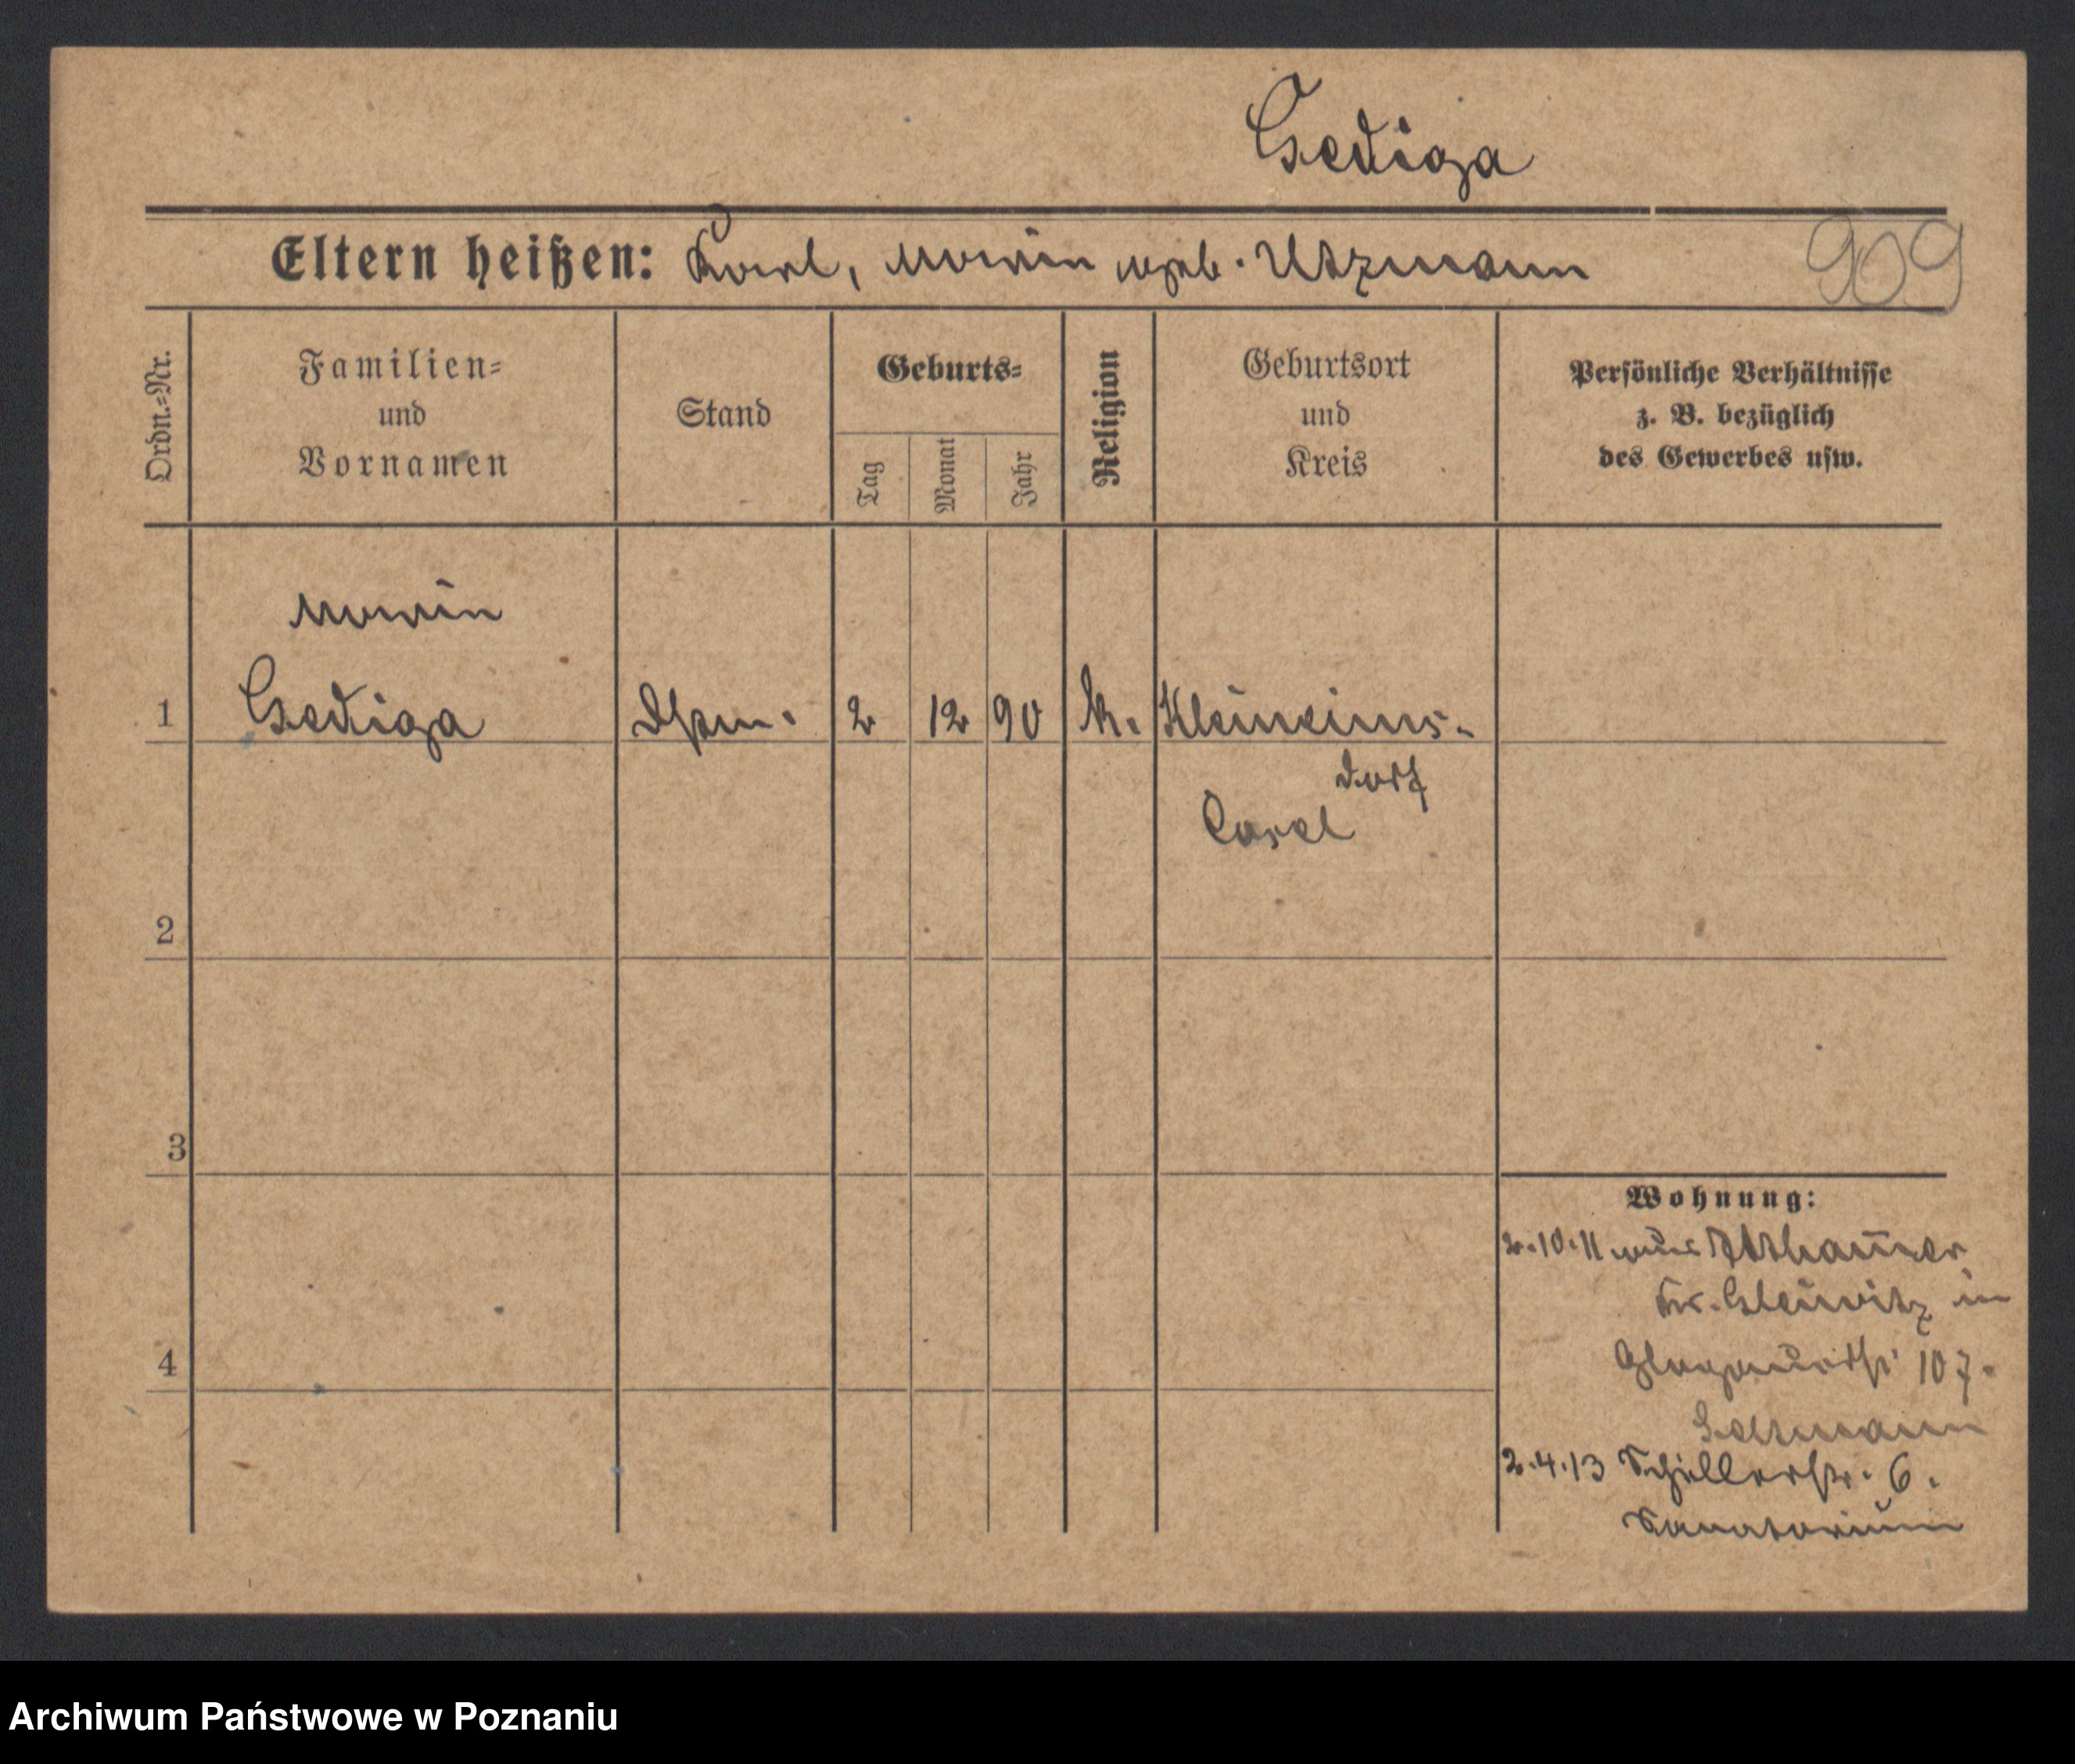 Gediga
Eltern heißen: Karl, Marie geb. Utzmann
909
Ordn.=Nr.
Familien=
und
Vornamen
Stand
Geburts=
Tag
Monat
Jahr
Religion
Geburtsort
und
Kreis
Persönliche Verhältnisse
z. B. bezüglich
des Gewerbes usw.
Marie
1 Gediga 2 12 90 k.
dorf
Cosel
2
3
4
Wohnung:
2.10.11 aus Althammer
Kr. Gleiwitz in
Glogauerstr 107.
2.4.13 Schillerstr. 6.
Sanatorium
Archiwum Państwowe w Poznaniu